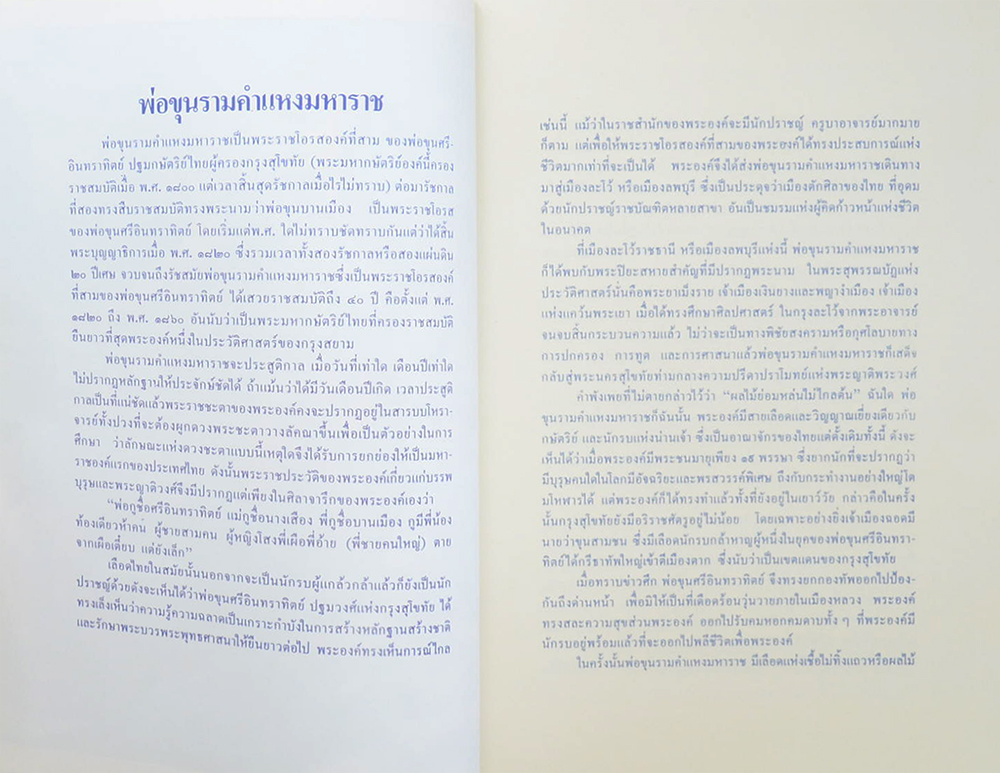 พ่อขุนรามคำแหงมหาราช
พ่อขุนรามคำแหงมหาราชเป็นพระราชโอรสองค์ที่สาม ของพ่อขุนศรี-
อินทราทิตย์ ปฐมกษัตริย์ไทยผู้ครองกรุงสุโขทัย (พระมหากษัตริย์องค์นี้ครอง
ราชสมบัติเมื่อ พ.ศ. ๑๘๐๐ แต่เวลาสิ้นสุดรัชกาลเมื่อไรไม่ทราบ) ต่อมารัชกาล
ที่สองทรงสืบราชสมบัติทรงพระนามว่าพ่อขุนบานเมือง เป็นพระราชโอรส
ของพ่อขุนศรีอินทราทิตย์ โดยเริ่มแต่พ.ศ. ใดไม่ทราบชัดทราบกันแต่ว่าได้สิ้น
พระบุญญาธิการเมื่อ พ.ศ. ๑๘๒๐ ซึ่งรวมเวลาทั้งสองรัชกาลหรือสองแผ่นดิน
๒๐ ปีเศษ จวบจนถึงรัชสมัยพ่อขุนรามคำแหงมหาราชซึ่งเป็นพระราชโอรสองค์
ที่สามของพ่อขุนศรีอินทราทิตย์ ได้เสวยราชสมบัติถึง ๔๐ ปี คือตั้งแต่ พ.ศ.
๑๘๒๐ ถึง พ.ศ. ๑๘๖๐ อันนับว่าเป็นพระมหากษัตริย์ไทยที่ครองราชสมบัติ
ยืนยาวที่สุดพระองค์หนึ่งในประวัติศาสตร์ของกรุงสยาม
พ่อขุนรามคำแหงมหาราชจะประสูติกาล เมื่อวันที่เท่าใด เดือนปีเท่าใด
ไม่ปรากฏหลักฐานให้ประจักษ์ชัดได้ ถ้าแม้นว่าได้มีวันเดือนปีเกิด เวลาประสูติ
กาลเป็นที่แน่ชัดแล้วพระราชชะตาของพระองค์คงจะปรากฏอยู่ในสารบบโหรา-
จารย์ทั้งปวงที่จะต้องผูกดวงพระชะตาวางลัคณาขึ้นเพื่อเป็นตัวอย่างในการ
ศึกษา ว่าลักษณะแห่งดวงชะตาแบบนี้เหตุใดจึงได้รับการยกย่องให้เป็นมหา-
ราชองค์แรกของประเทศไทย ดังนั้นพระราชประวัติของพระองค์เกี่ยวแก่บรรพ
บุรุษและพระญาติวงศ์จึงมีปรากฏแต่เพียงในศิลาจารึกของพระองค์เองว่า
“พ่อกูชื่อศรีอินทราทิตย์ แม่กูชื่อนางเสือง พี่กูชื่อบานเมือง กูมีพี่น้อง
ท้องเดียวห้าคน ผู้ชายสามคน ผู้หญิงโสงพี่เผือพี่อ้าย (พี่ชายคนใหญ่) ตาย
จากเผือเตี้ยบ แต่ยังเล็ก”
เลือดไทยในสมัยนั้นนอกจากจะเป็นนักรบผู้แกล้วกล้าแล้วก็ยังเป็นนัก
ปราชญ์ด้วยดังจะเห็นได้ว่าพ่อขุนศรีอินทราทิตย์ ปฐมวงศ์แห่งกรุงสุโขทัย ได้
ทรงเล็งเห็นว่าความรู้ความฉลาดเป็นเกราะกำบังในการสร้างหลักฐานสร้างชาติ
และรักษาพระบวรพระพุทธศาสนาให้ยืนยาวต่อไป พระองค์ทรงเห็นการณ์ไกล
เช่นนี้ แม้ว่าในราชสำนักของพระองค์จะมีนักปราชญ์ ครูบาอาจารย์มากมาย
ก็ตาม แต่เพื่อให้พระราชโอรสองค์ที่สามของพระองค์ได้ทรงประสบการณ์แห่ง
ชีวิตมากเท่าที่จะเป็นได้ พระองค์จึงได้ส่งพ่อขุนรามคำแหงมหาราชเดินทาง
มาสู่เมืองละโว้ หรือเมืองลพบุรี ซึ่งเป็นประตุจว่าเมืองตักศิลาของไทย ที่อุดม
ด้วยนักปราชญ์ราชบัณฑิตหลายสาขา อันเป็นชมรมแห่งผู้คิดก้าวหน้าแห่งชีวิต
ในอนาคต
ที่เมืองละโว้ราชธานี หรือเมืองลพบุรีแห่งนี้ พ่อขุนรามคำแหงมหาราช
ก็ได้พบกับพระปิยะสหายสำคัญที่มีปรากฏพระนาม ในพระสุพรรณบัฏแห่ง
ประวัติศาสตร์นั่นคือพระยาเม็งราย เจ้าเมืองเงินยางและพญางำเมือง เจ้าเมือง
แห่งแคว้นพระเยา เมื่อได้ทรงศึกษาศิลปศาสตร์ ในกรุงละโว้จากพระอาจารย์
จนจบสิ้นกระบวนความแล้ว ไม่ว่าจะเป็นทางพิชัยสงครามหรือกุศโลบายทาง
การปกครอง การทูต และการศาสนาแล้วพ่อขุนรามคำแหงมหาราชก็เสด็จ
กลับสู่พระนครสุโขทัยท่ามกลางความปรีดาปราโมทย์แห่งพระญาติพระวงศ์
คำพังเพยที่ไม่ตายกล่าวไว้ว่า “ผลไม้ย่อมหล่นไม่ไกลต้น” ฉันใด พ่อ
ขุนรามคำแหงมหาราชก็ฉันนั้น พระองค์มีสายเลือดและวิญญาณเยี่ยงเดียวกับ
กษัตริย์ และนักรบแห่งน่านเจ้า ซึ่งเป็นอาณาจักรของไทยแต่ดั้งเดิมทั้งนี้ ดังจะ
เห็นได้ว่าเมื่อพระองค์มีพระชนมายุเพียง ๑๙ พรรษา ซึ่งยากนักที่จะปรากฏว่า
มีบุรุษคนใดในโลกมีอัจฉริยะและพรสวรรค์พิเศษ ถึงกับกระทำงานอย่างใหญ่โต
มโหฬารได้ แต่พระองค์ก็ได้ทรงทำแล้วทั้งที่ยังอยู่ในเยาว์วัย กล่าวคือในครั้ง
นั้นกรุงสุโขทัยยังมีอริราชศัตรูอยู่ไม่น้อย โดยเฉพาะอย่างยิ่งเจ้าเมืองฉอดมี
นายว่าขุนสามชน ซึ่งมีเลือดนักรบกล้าหาญผู้หนึ่งในยุคของพ่อขุนศรีอินทรา-
ทิตย์ได้กรีธาทัพใหญ่เข้าตีเมืองตาก ซึ่งนับว่าเป็นเขตแดนของกรุงสุโขทัย
เมื่อทราบข่าวศึก พ่อขุนศรีอินทราทิตย์ จึงทรงยกกองทัพออกไปป้อง-
กันถึงด่านหน้า เพื่อมิให้เป็นที่เดือดร้อนวุ่นวายภายในเมืองหลวง พระองค์
ทรงสละความสุขส่วนพระองค์ ออกไปรับคมหอกคมดาบทั้ง ๆ ที่พระองค์มี
นักรบอยู่พร้อมแล้วที่จะออกไปพลีชีวิตเพื่อพระองค์
ในครั้งนั้นพ่อขุนรามคำแหงมหาราช มีเลือดแห่งเชื้อไม่ทิ้งแถวหรือผลไม้